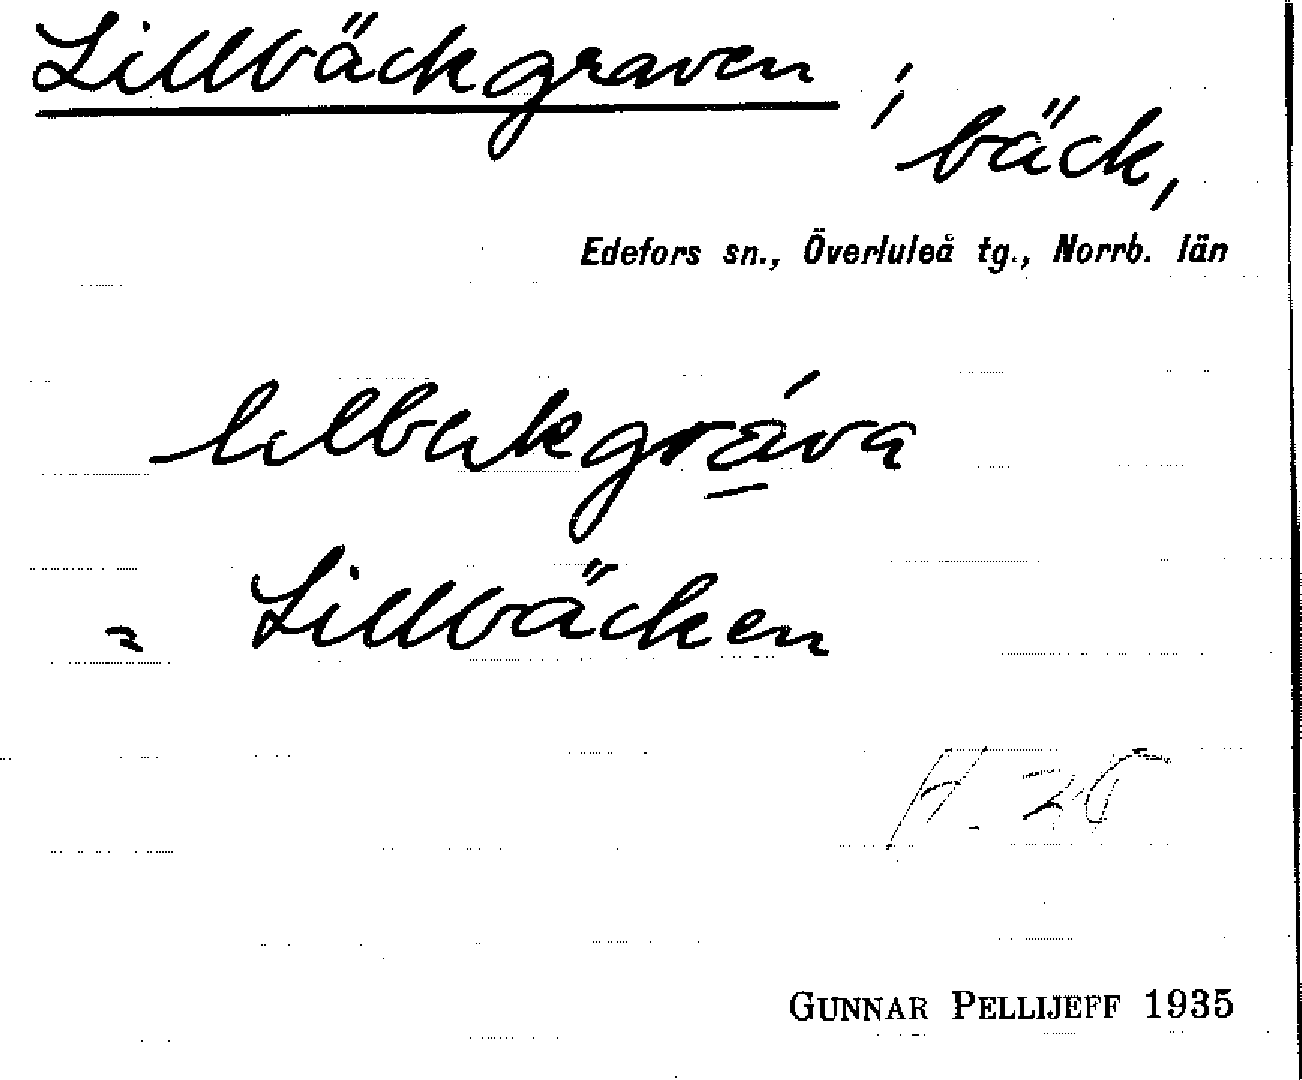 Lillbäckgraven ;
bäck,
Edefors sn., Överluleå tg., Norrb. län
= Lillbäcken
GUNNAR PELLIJEFF 1935